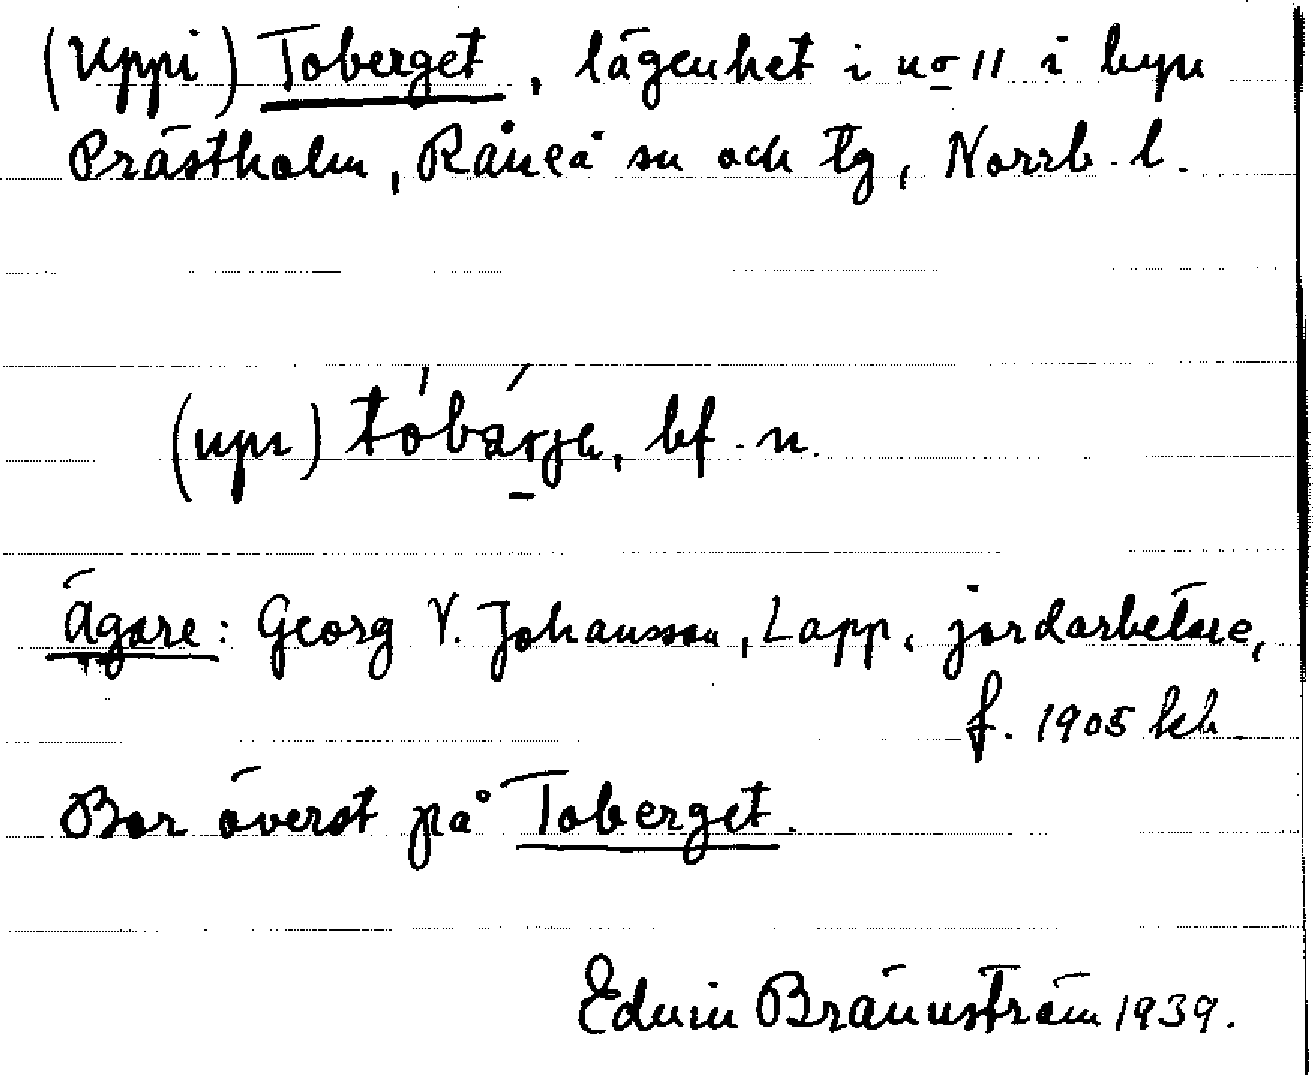 (Uppi) Toberget, lägenhet i no 11 i byn
Prästholm, Råneå sn och tg, Norrb. l.
(upı) tóbárjə, bf. n.
Ägare: Georg V. Johansson, Lapp. jordarbetare,
f. 1905 kb
Bor överst på Toberget.
Edvin Brännström 1939.